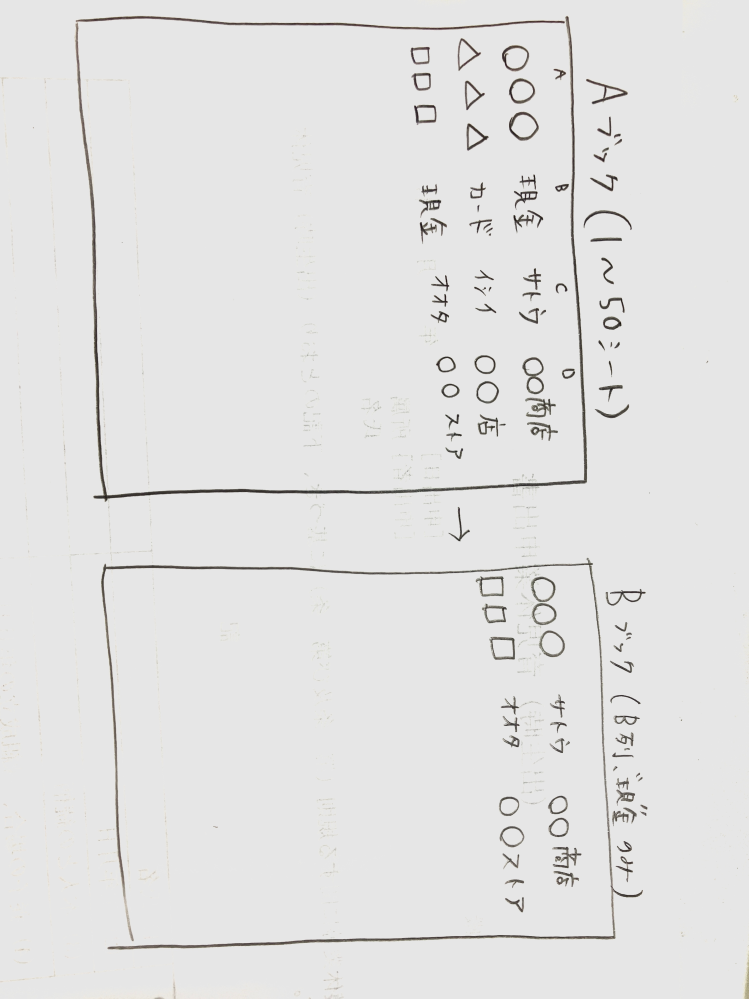 Aブック(1〜50シート)
A B C D
○○○ 現金 サトウ ○○商店
△△△ カード イシイ ○○店
□□□ 現金 オオタ ○○ストア
→
Bブック(B列、"現金"のみ)
○○○ サトウ ○○商店
□□□ オオタ ○○ストア